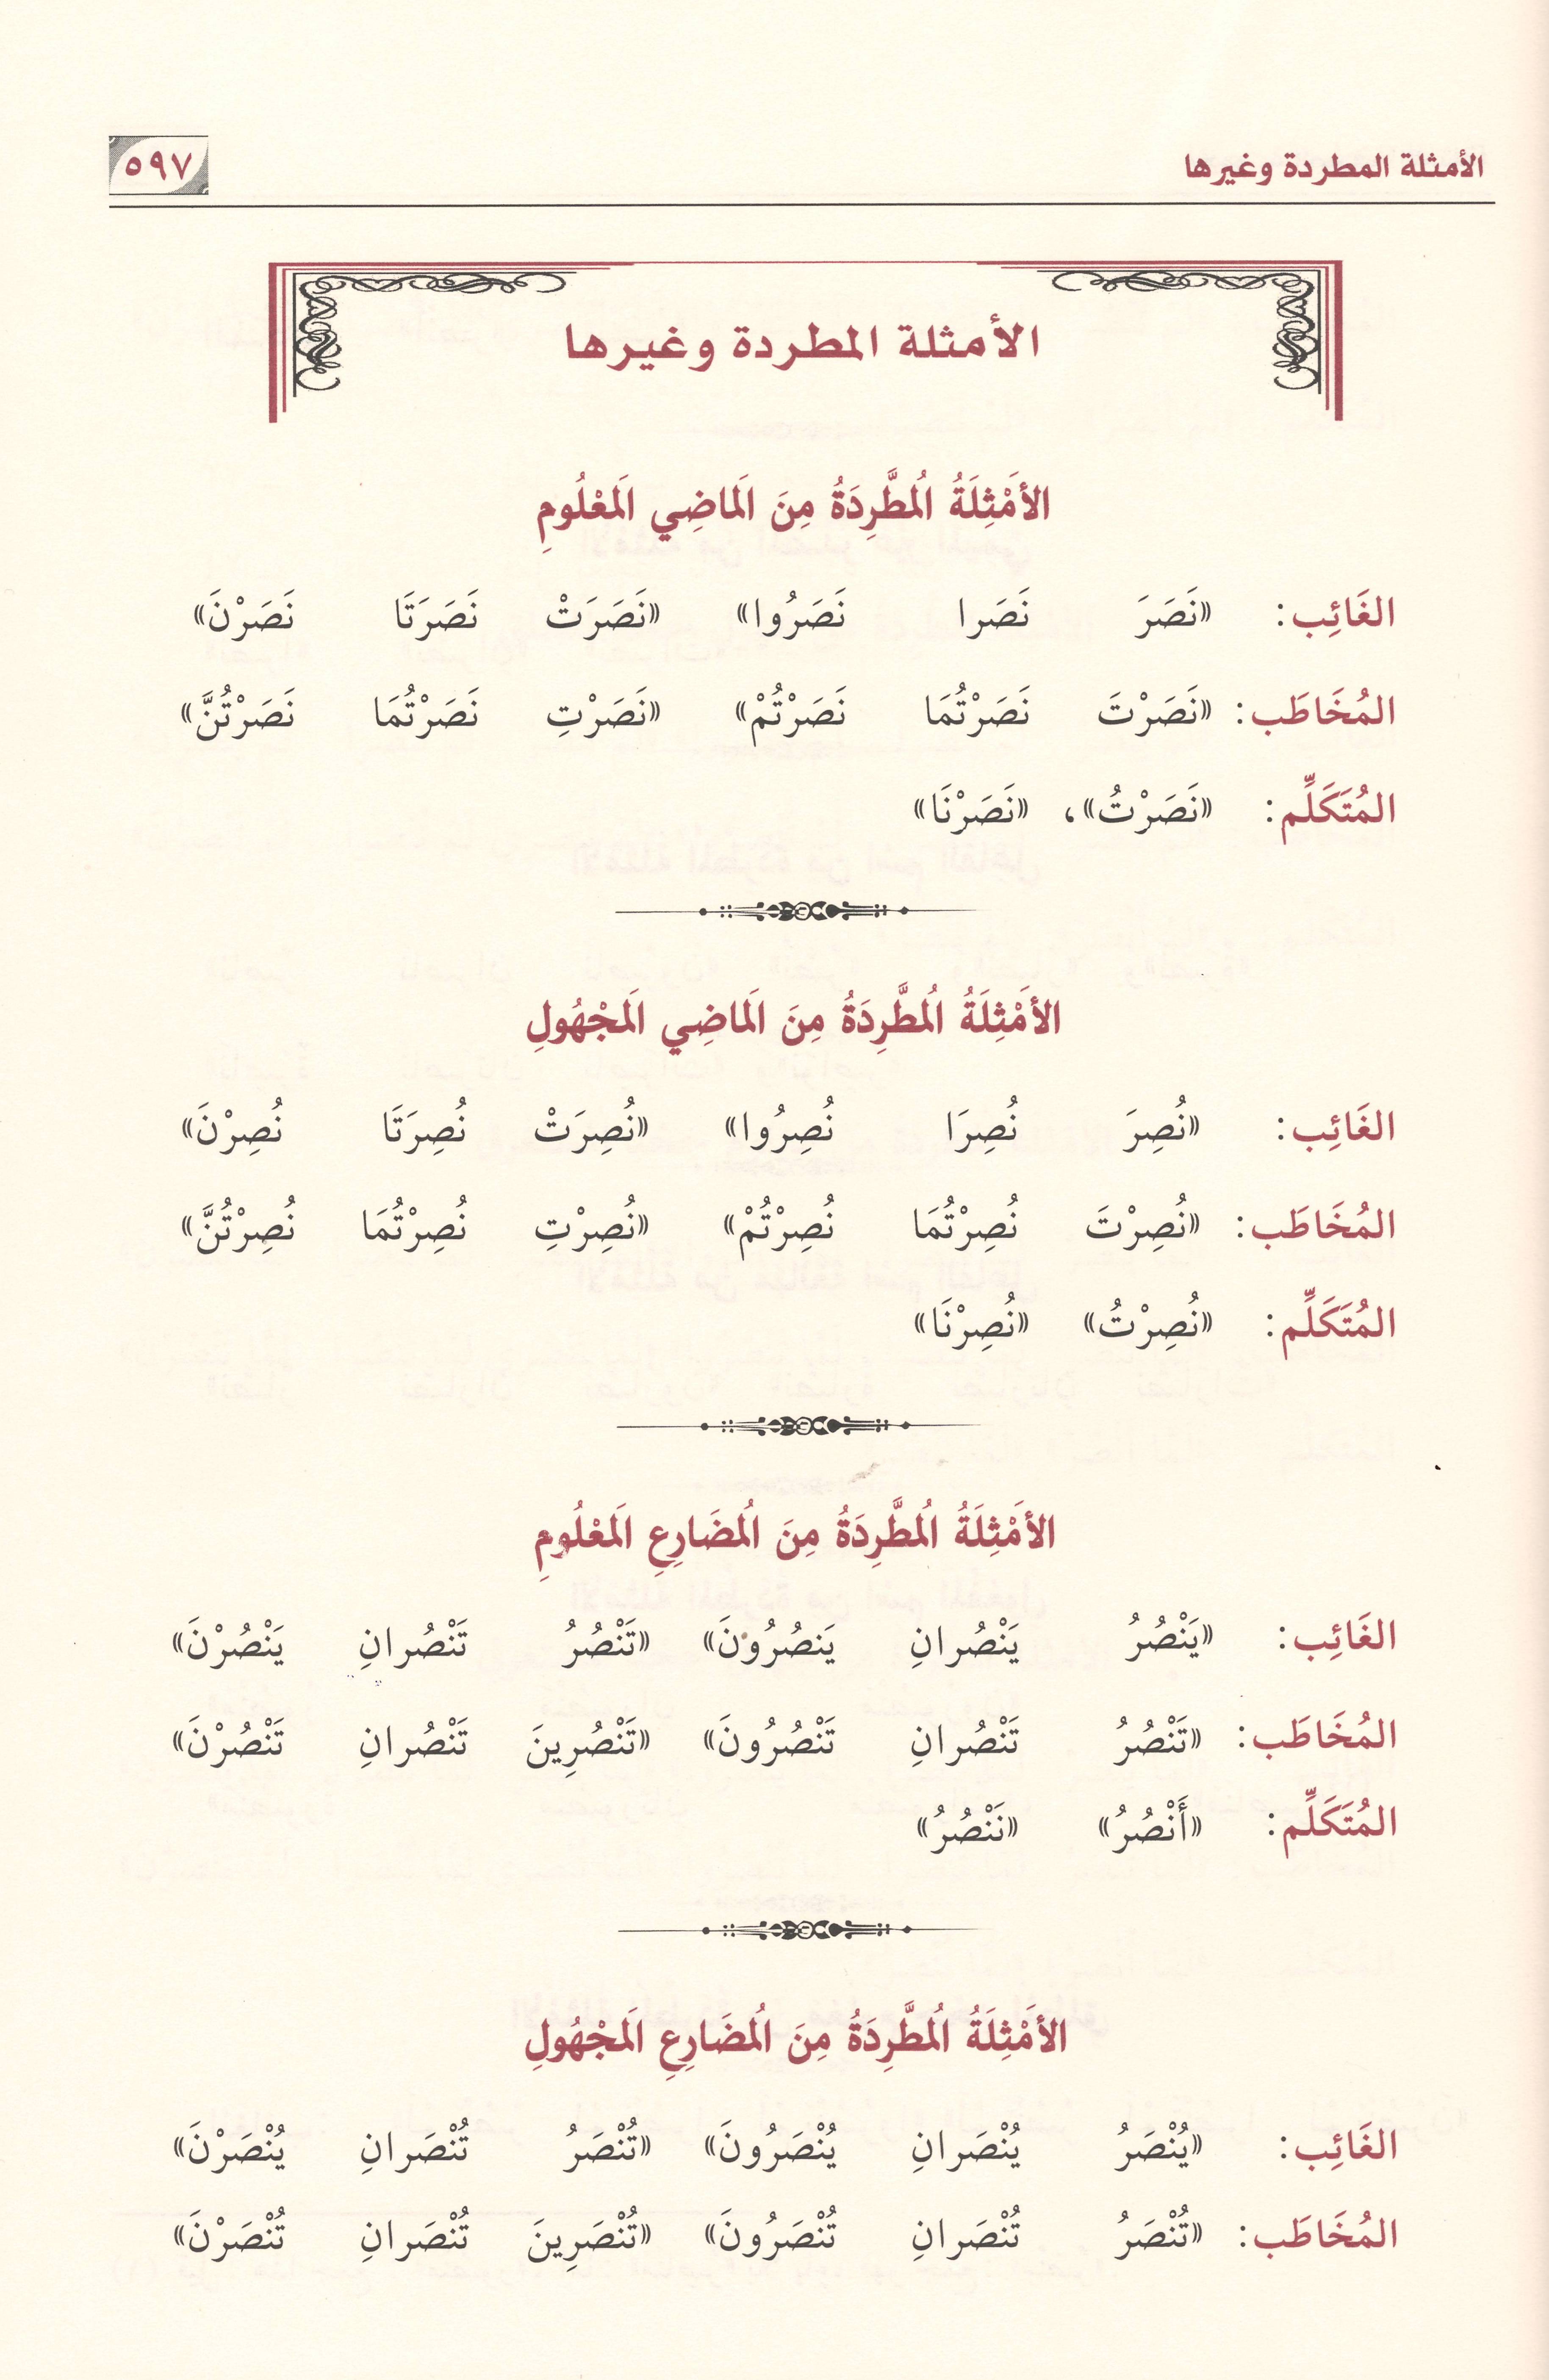 الأمثلة المطردة وغيرها ٥٩٧
الأمثلة المطردة وغيرها
الأَمْثِلَةُ الْمُطَّرِدَةُ مِنَ الْمَاضِي الْمَعْلُومِ
الغَائِب: «نَصَرَ نَصَرا نَصَرُوا» «نَصَرَتْ نَصَرَتَا نَصَرْنَ»
المُخَاطَب: «نَصَرْتَ نَصَرْتُمَا نَصَرْتُمْ» «نَصَرْتِ نَصَرْتُمَا نَصَرْتُنَّ»
المُتَكَلِّم: «نَصَرْتُ»، «نَصَرْنَا»
الأَمْثِلَةُ الْمُطَّرِدَةُ مِنَ الْمَاضِي الْمَجْهُولِ
الغَائِب: «نُصِرَ نُصِرَا نُصِرُوا» «نُصِرَتْ نُصِرَتَا نُصِرْنَ»
المُخَاطَب: «نُصِرْتَ نُصِرْتُمَا نُصِرْتُمْ» «نُصِرْتِ نُصِرْتُمَا نُصِرْتُنَّ»
المُتَكَلِّم: «نُصِرْتُ» «نُصِرْنَا»
الأَمْثِلَةُ الْمُطَّرِدَةُ مِنَ الْمُضَارِعِ الْمَعْلُومِ
الغَائِب: «يَنْصُرُ يَنْصُرانِ يَنصُرُونَ» «تَنْصُرُ تَنْصُرانِ يَنْصُرْنَ»
المُخَاطَب: «تَنْصُرُ تَنْصُرانِ تَنْصُرُونَ» «تَنْصُرِينَ تَنْصُرانِ تَنْصُرْنَ»
المُتَكَلِّم: «أَنْصُرُ» «نَنْصُرُ»
الأَمْثِلَةُ الْمُطَّرِدَةُ مِنَ الْمُضَارِعِ الْمَجْهُولِ
الغَائِب: «يُنْصَرُ يُنْصَرانِ يُنْصَرُونَ» «تُنْصَرُ تُنْصَرانِ يُنْصَرْنَ»
المُخَاطَب: «تُنْصَرُ تُنْصَرانِ تُنْصَرُونَ» «تُنْصَرِينَ تُنْصَرانِ تُنْصَرْنَ»